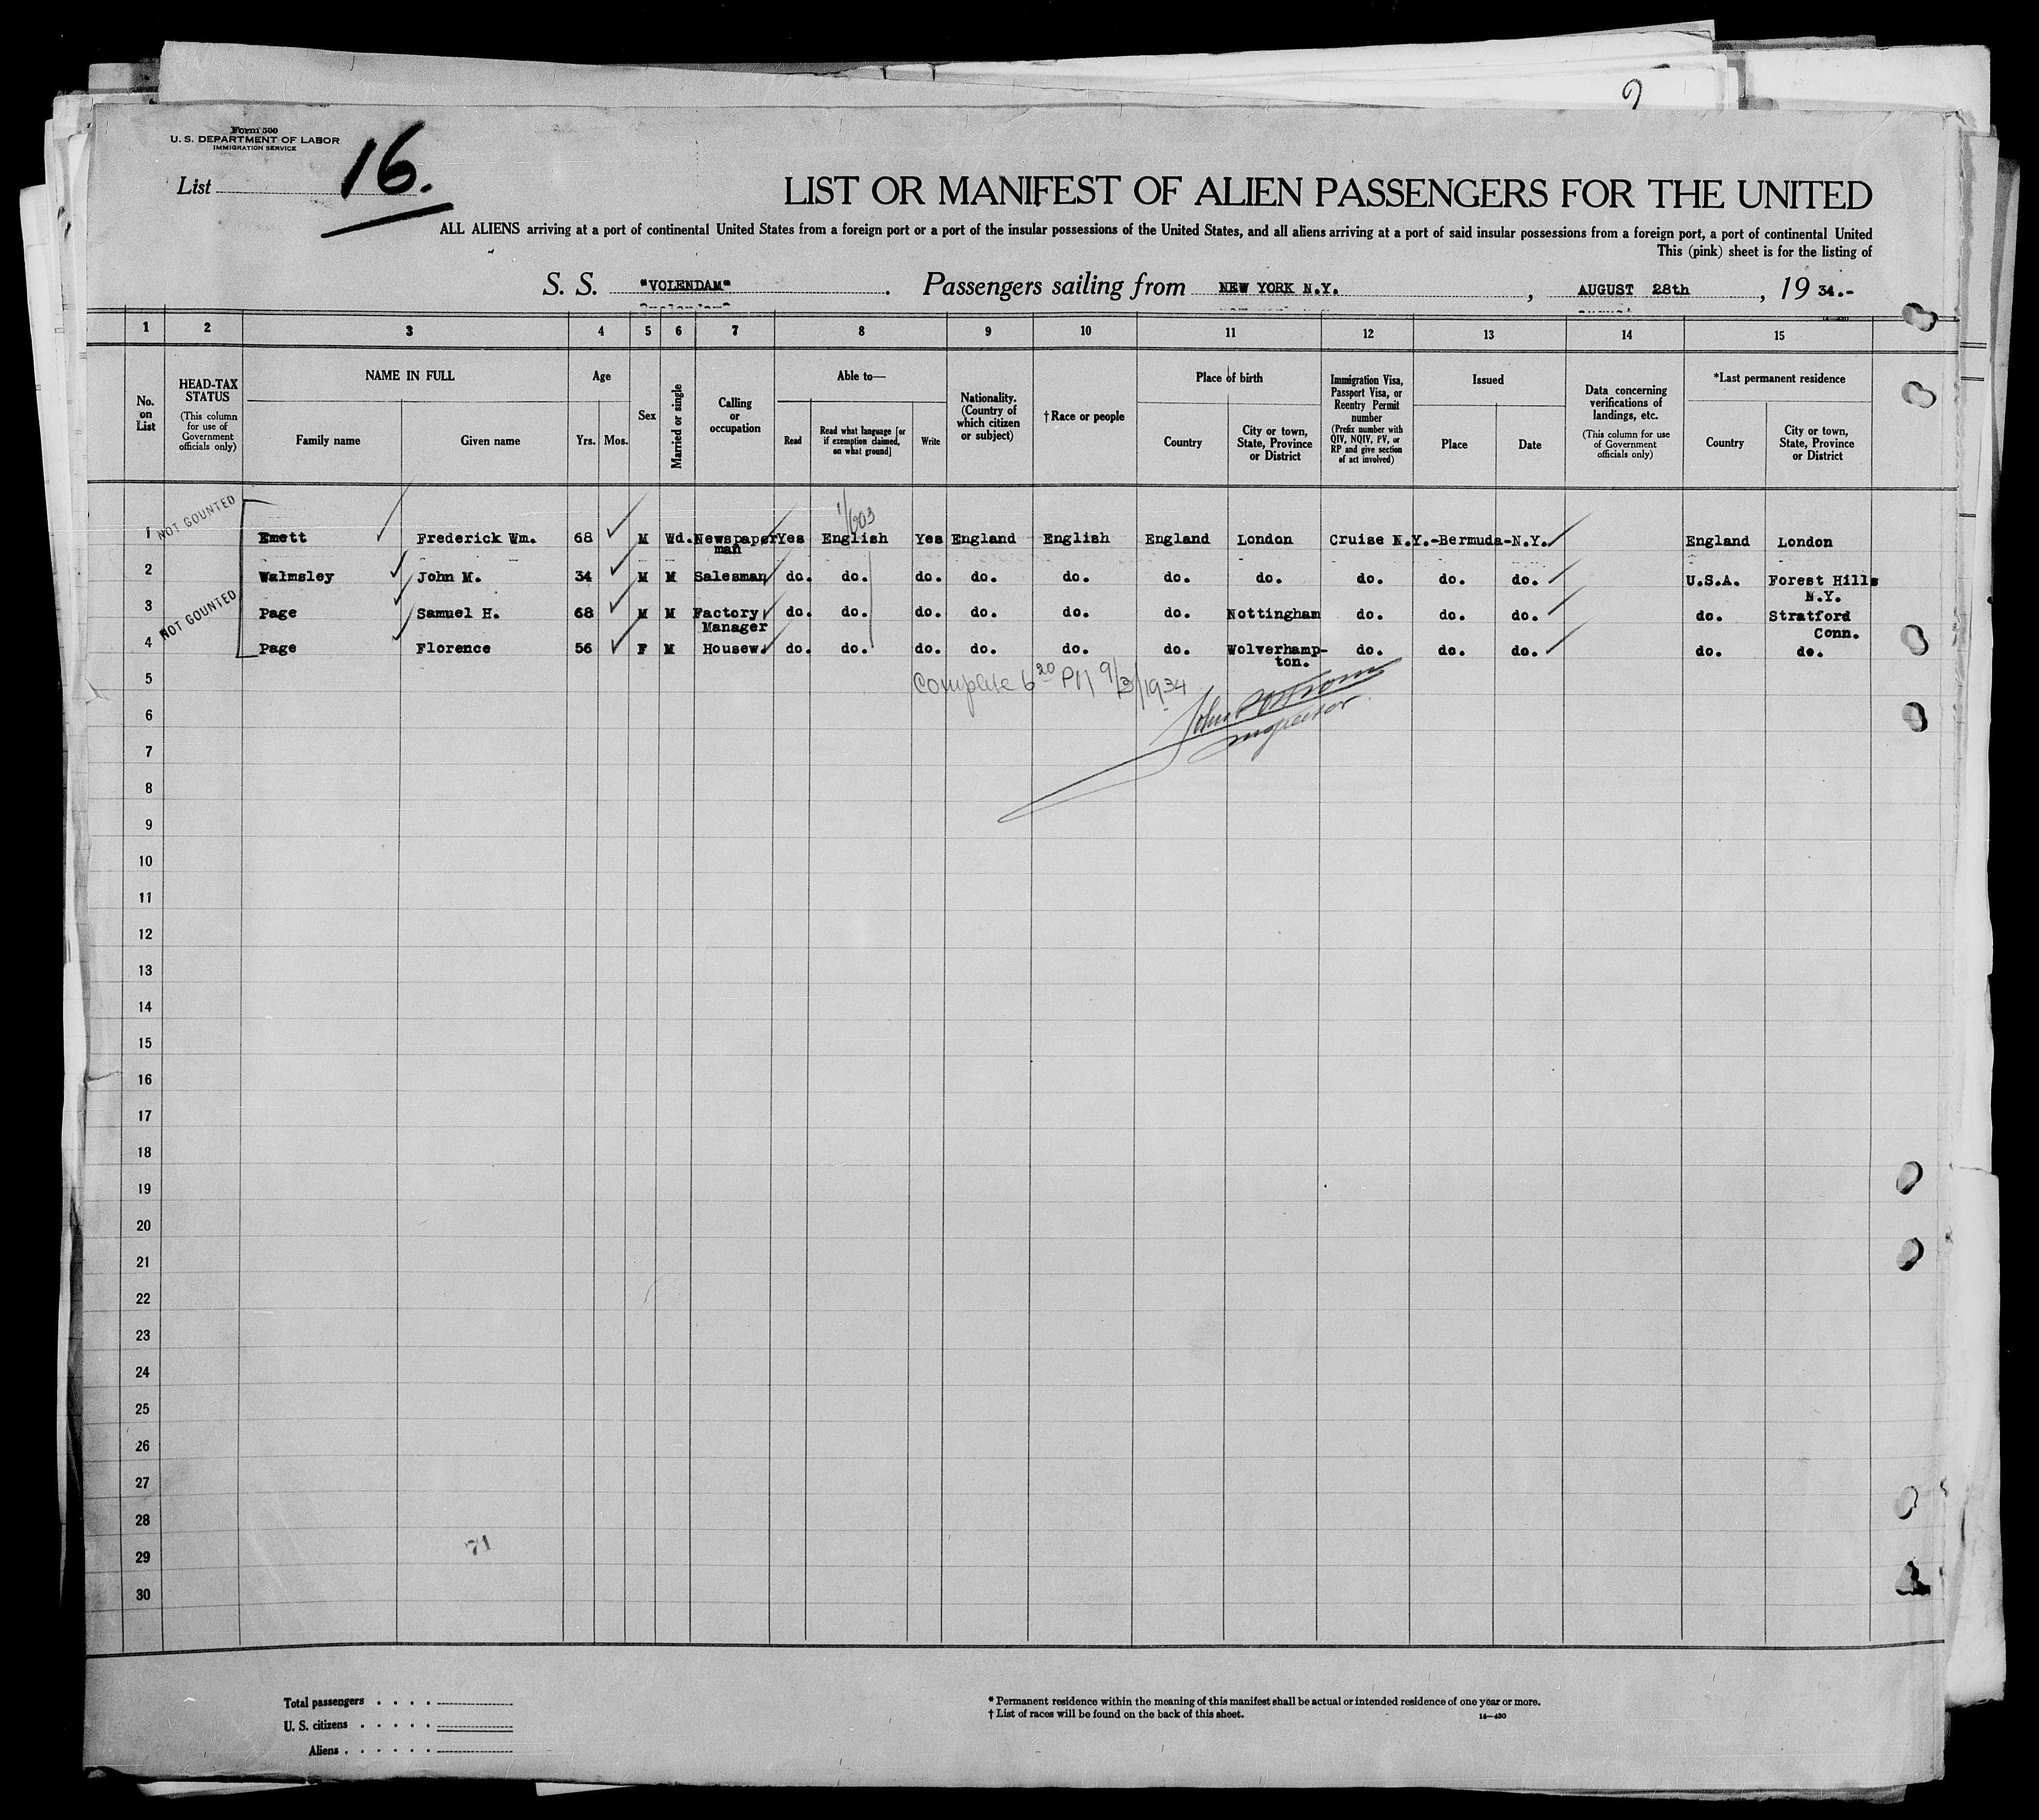 9
Form 500
U. S. DEPARTMENT OF LABOR
IMMIGRATION SERVICE
List 16.
LIST OR MANIFEST OF ALIEN PASSENGERS FOR THE UNITED
ALL ALIENS arriving at a port of continental United States from a foreign port or a port of the insular possessions of the United States, and all aliens arriving at a port of said insular possessions from a foreign port, a port of continental United
This (pink) sheet is for the listing of
S. S. "VOLENDAM". Passengers sailing from NEW YORK N.Y. , AUGUST 28th , 19 34.-
1 2 3 4 5 6 7 8 9 10 11 12 13 14 15
No. on List
HEAD-TAX STATUS (This column for use of Government officials only)
NAME IN FULL
Family name Given name
Age
Yrs. Mos.
Sex
Married or single
Calling or occupation
Able to—
Read Read what language [or if exemption claimed, on what ground] Write
Nationality. (Country of which citizen or subject)
†Race or people
Place of birth
Country City or town, State, Province or District
Immigration Visa, Passport Visa, or Reentry Permit number (Prefix number with QIV, NQIV, PV, or RP and give section of act involved)
Issued
Place Date
Data concerning verifications of landings, etc. (This column for use of Government officials only)
*Last permanent residence
Country City or town, State, Province or District
NOT COUNTED
1 Emett Frederick Wm. 68 M Wd. Newspaper man Yes English Yes England English England London Cruise N.Y.-Bermuda-N.Y. England London
2 Walmsley John M. 34 M M Salesman do. do. do. do. do. do. do. do. do. do. U.S.A. Forest Hills N.Y.
NOT COUNTED
3 Page Samuel H. 68 M M Factory Manager do. do. do. do. do. do. Nottingham do. do. do. do. Stratford Conn.
4 Page Florence 56 F M Housew. do. do. do. do. do. do. Wolverhamp-ton. do. do. do. do. do.
5
Complete 6 20 PM 9/3/1934
6
Inspector
7
8
9
10
11
12
13
14
15
16
17
18
19
20
21
22
23
24
25
26
27
28
29
71
30
Total passengers . . . .
U. S. citizens . . . . .
Aliens . . . . . .
* Permanent residence within the meaning of this manifest shall be actual or intended residence of one year or more.
† List of races will be found on the back of this sheet.
14—430